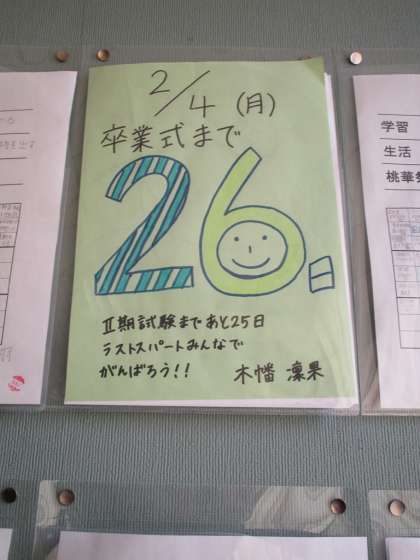 2/4(月)
卒業式まで
26日
Ⅱ期試験まであと25日
ラストスパートみんなで
がんばろう!!
木幡 凜果
学習
生活